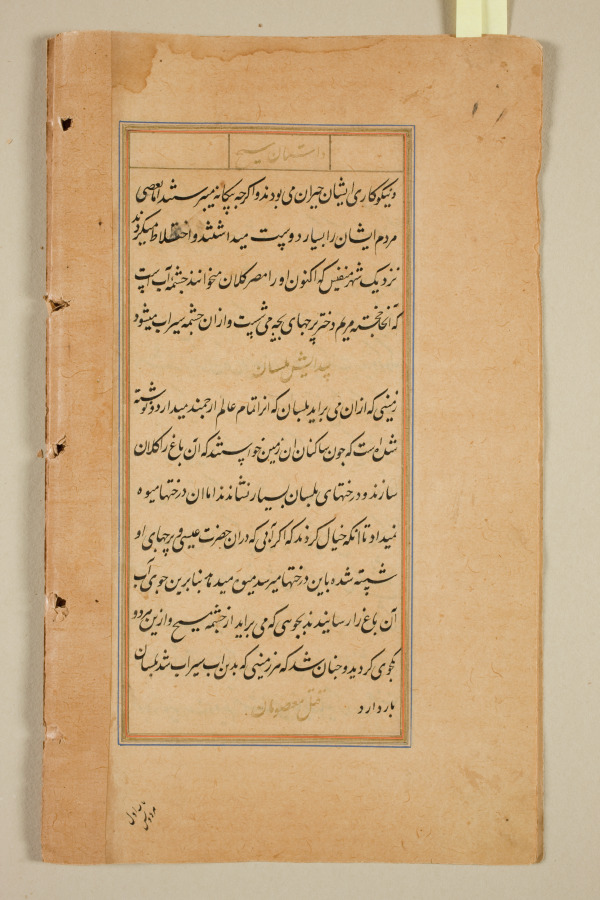 داستان مسیح
و نیکوکاری ایشان حیران می بودند و اکرچه بیکانه میپرستیدند اما بعضی
مردم ایشان را بسیار دوست میداشتند و اختلاط میکردند
نزدیک شهر منفیس که اکنون او را مصر کلان میخوانند چشمه آب است
که آنجا خجسته مریم دختر پرچهای بچه می شست و ازان چشمه سیراب میشود
پیدایش بلسان
زمینی که ازان می براید بلسان که انرا تمام عالم ارجمند میدارد و نوشته
شده است که چون ساکنان ان زمین خواستند که آن باغ را کلان
سازند و درختهای بلسان بسیار نشاندند اما ان درختها میوه
نمیداد تا انکه خیال کردند که اکر آبی که دران حضرت عیسی و پرچهای او
شسته شده باین درختها میرسد میوه میدهد بنابرین جوی آب
آن باغ را رسانیدند بجوی که می براید از چشمه مسیح و ازین هر دو
یکجوی کردید و چنان شد که هر زمینی که بدین اب سیراب شد بلسان
بار دارد
قتل معصومان